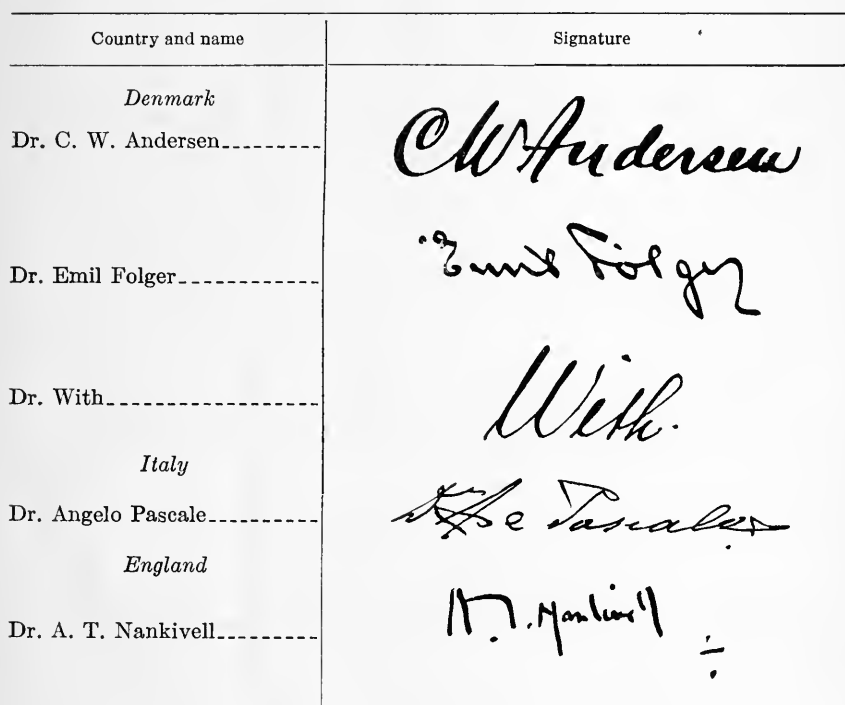 Country and name Signature
Denmark
Dr. C. W. Andersen C W Andersen
Dr. Emil Folger Emil Folger
Dr. With With.
Italy
Dr. Angelo Pascale
England
Dr. A. T. Nankivell A. T. Nankivell